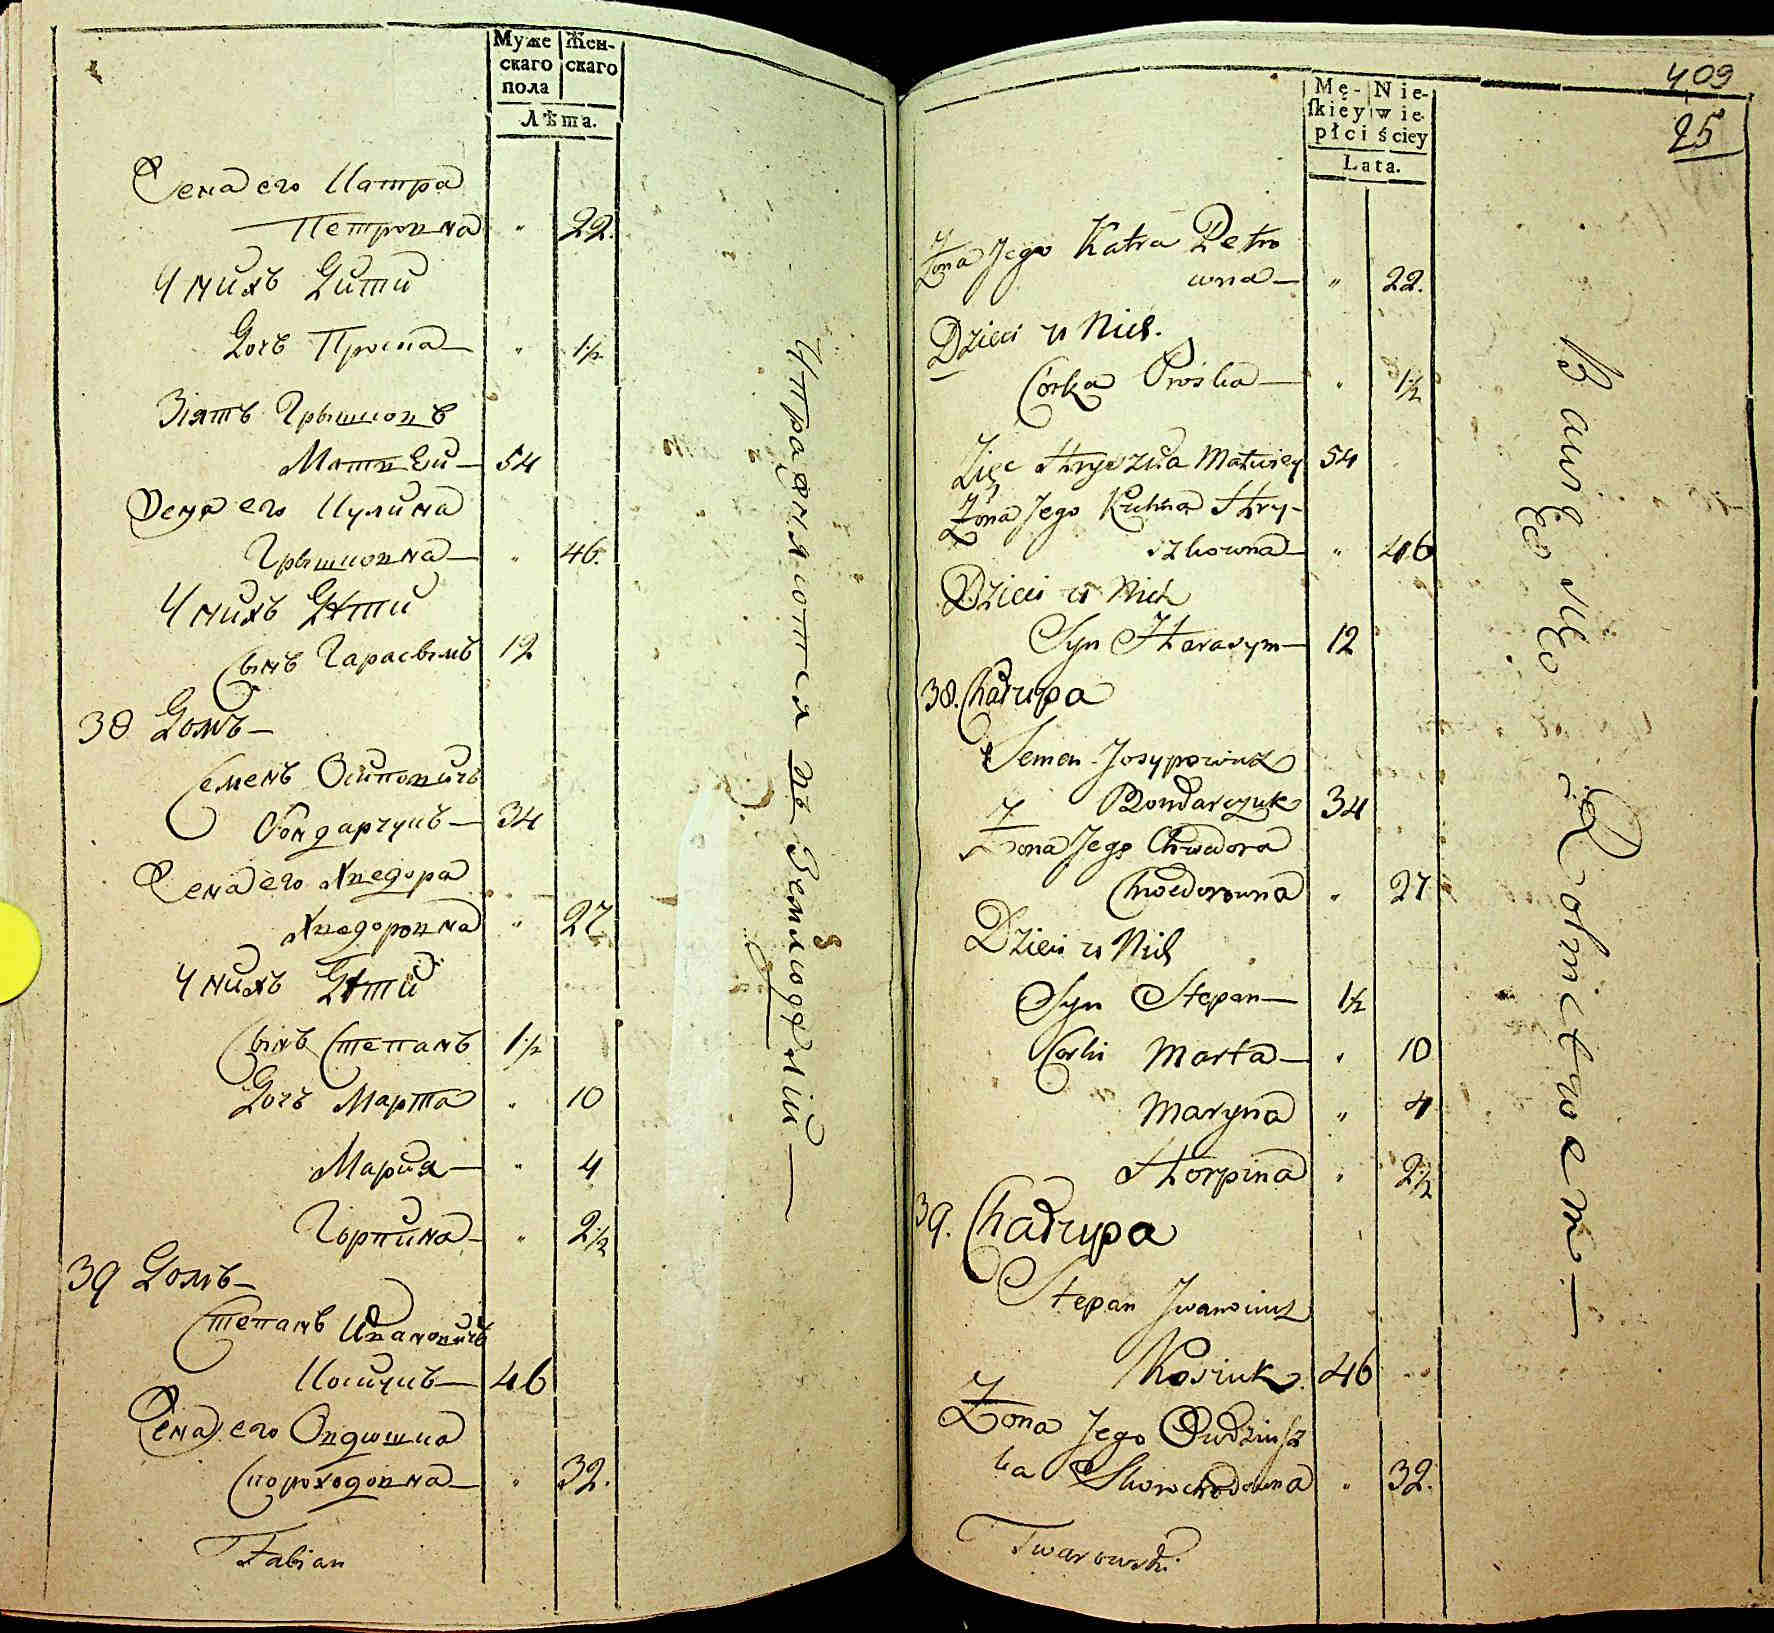 Муже
скаго
пола
Жен-
скаго
Лѣта.
Жена его Катра
Петровна " 22.
У нихъ Дити
Дочь Проська " 1½
Зять Грышковъ
Матвѣй 54
Жена его Кулина
Грышковна " 46.
У нихъ Дѣти
Сынъ Гарасымъ 12
38 Домъ
Семенъ Осиповичъ
Бондарчукъ 34
Жена его Хведора
Хведоровна " 27
У нихъ Дѣти
Сынъ Степанъ 1½
Дочь Марта " 10
Мария " 4
Горпина " 2½
39 Домъ
Степанъ Ивановичъ
Косичкъ 46
Жена его Овдюшка
Скороходовна " 32.
Fabian
Упражняются въ Земледѣлїи
409
25
Mę-
skiey
płci
Nie-
wie
ściey
Lata.
Żona Jego Katra Petro
wna " 22.
Dzieci u Nich.
Corka Prośka " 1½
Zięc Hryszka Matwiey 54
Żona Jego Kulina Hry-
szkowna " 46
Dzieci u Nich
Syn Harasym 12
38. Chałupa
Semen Josypowicz
Bondarczuk 34
Żona Jego Chwedora
Chwedorowna " 27
Dzieci u Nich
Syn Stepan 1½
Corki Marta " 10
Maryna " 4
Horpina " 2½
39. Chałupa
Stepan Jwanowicz
Kosiuk 46
Żona Jego Owdziusz
ka Skorochodowna " 32.
Twarowski
Bawią się Rolnictwem